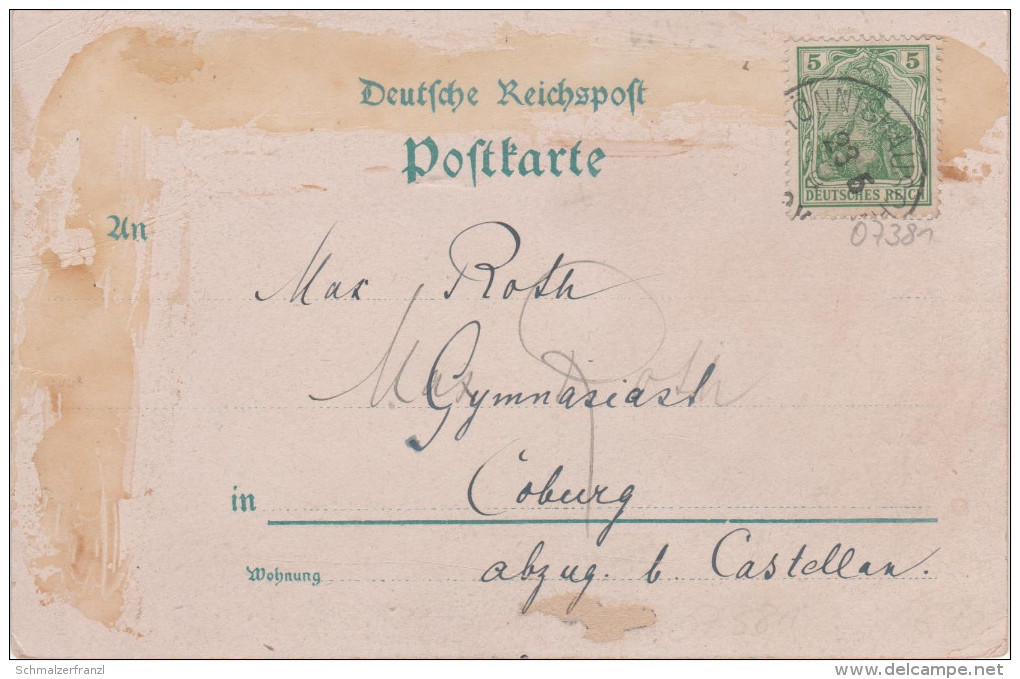 Deutsche Reichspost
Postkarte
5 5
DEUTSCHES REICH
23 5
07381
An
Max Roth
Max Roth
Gymnasiast
in Coburg
Wohnung abzug. b. Castellan.
Schmalzerfranzl
www.delcampe.net